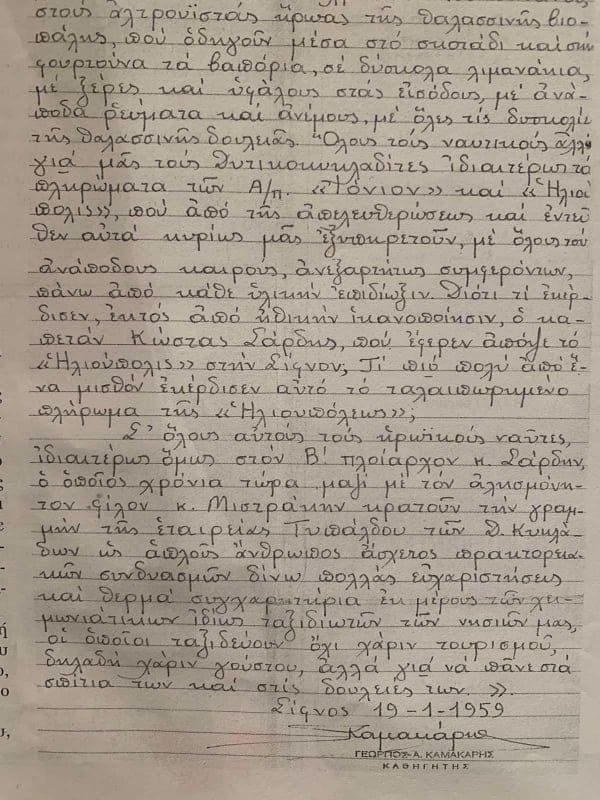 στοὺς ἀλτρουϊστὰς ἥρωας τῆς θαλασσινῆς βιο-
πάλης, ποὺ ὁδηγοῦν μέσα στὸ σκοτάδι καὶ στὴ
φουρτούνα τὰ βαπόρια, σὲ δύσκολα λιμανάκια,
μὲ ξέρες καὶ ὑφάλους στὰς εἰσόδους, μὲ ἀνά-
ποδα ρεύματα καὶ ἀνέμους, μὲ ὅλες τὶς δυσκολίε
τῆς θαλασσινῆς δουλειᾶς. Ὅλους τοὺς ναυτικοὺς ἀλλὰ
γιὰ μᾶς τοὺς Δυτικοκυκλαδίτες ἰδιαιτέρως τὰ
πληρώματα τῶν Α/π. «Ἰόνιον» καὶ «Ἡλιού
πολις», ποὺ ἀπὸ τῆς ἀπελευθερώσεως καὶ ἐντεῦ
θεν αὐτὰ κυρίως μᾶς ἐξυπηρετοῦν, μὲ ὅλους τοὺ
ἀνάποδους καιρούς, ἀνεξαρτήτως συμφερόντων,
πάνω ἀπὸ κάθε ὑλικὴν ἐπιδίωξιν. Διότι τί ἐκέρ-
δισεν, ἐκτὸς ἀπὸ ἠθικὴν ἱκανοποίησιν, ὁ κα-
πετὰν Κώστας Σάρδης, ποὺ ἔφερεν ἀπόψε τὸ
«Ἡλιούπολις» στὴν Σίφνον; Τί πιὸ πολὺ ἀπὸ ἕ-
να μισθὸν ἐκέρδισεν αὐτὸ τὸ ταλαιπωρημένο
πλήρωμα τῆς «Ἡλιουπόλεως»;
Σ' ὅλους αὐτοὺς τοὺς ἡρωϊκοὺς ναῦτες,
ἰδιαιτέρως ὅμως στὸν Β! πλοίαρχον κ. Σάρδην,
ὁ ὁποῖος χρόνια τώρα μαζὶ μὲ τὸν ἀλησμόνη-
τον φίλον κ. Μιστράκην κρατοῦν τὴν γραμ-
μὴν τῆς ἑταιρείας Τυπάλδου τῶν Δ. Κυκλά-
δων ὡς ἁπλοῦς ἄνθρωπος ἄσχετος πρακτορεια-
κῶν συνδυασμῶν δίνω πολλὰς εὐχαριστήσεις
καὶ θερμὰ συγχαρητήρια ἐκ μέρους τῶν χει-
μωνιάτικων ἰδίως ταξιδιωτῶν τῶν νησιῶν μας,
οἱ ὁποῖοι ταξιδεύουν ὄχι χάριν τουρισμοῦ,
δηλαδὴ χάριν γούστου, ἀλλὰ γιὰ νὰ πᾶνε στὰ
σπίτια των καὶ στὶς δουλειές των. ».
Σίφνος 19-1-1959
Καμακάρης
ΓΕΩΡΓΙΟΣ-Α. ΚΑΜΑΚΑΡΗΣ
ΚΑΘΗΓΗΤΗΣ